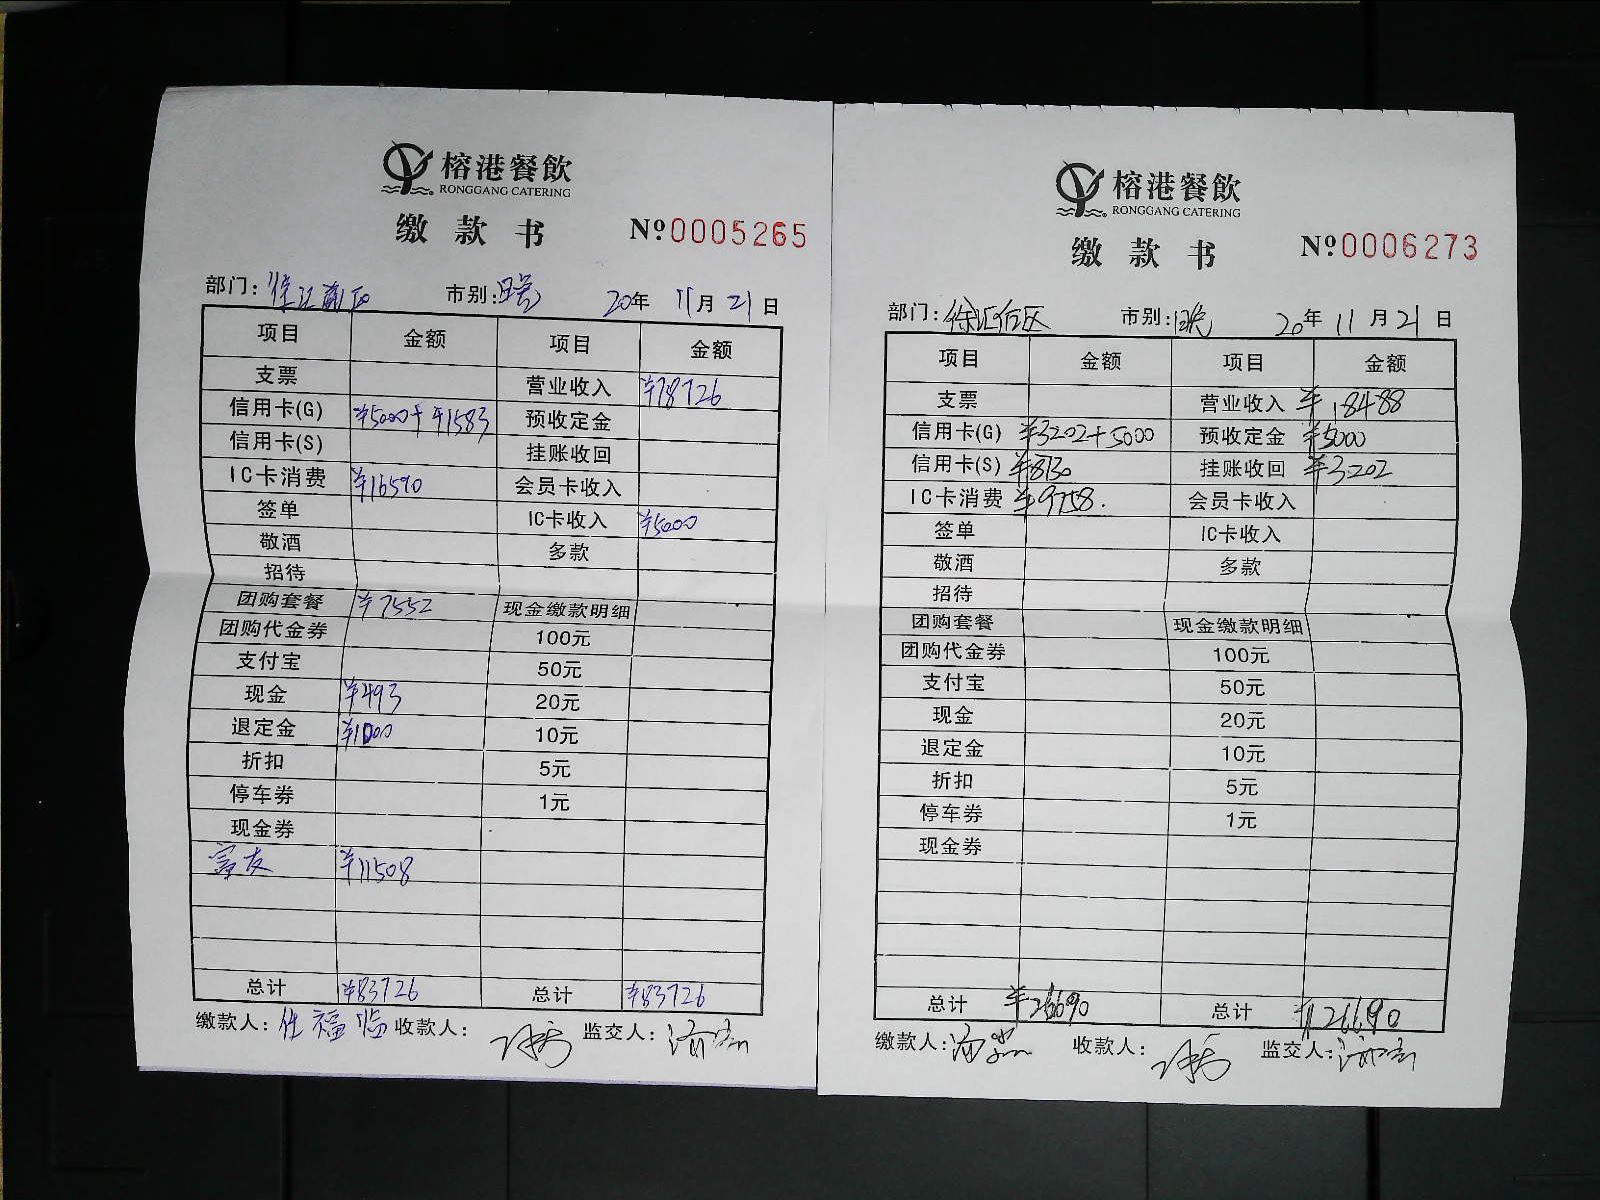 榕港餐飲
RONGGANG CATERING
缴款书 №0005265
部门: 市别: 20年 11月 21日
项目 金额 项目 金额
支票 营业收入 ¥78726
信用卡(G) ¥5000+¥1583 预收定金
信用卡(S) 挂账收回
IC卡消费 ¥16590 会员卡收入
签单 IC卡收入 ¥5000
敬酒 多款
招待
团购套餐 ¥7552 现金缴款明细
团购代金券 100元
支付宝 50元
现金 ¥493 20元
退定金 ¥1000 10元
折扣 5元
停车券 1元
现金券
¥11508
总计 ¥83726 总计 ¥83726
缴款人:任福临 收款人: 监交人:
榕港餐飲
RONGGANG CATERING
缴款书 №0006273
部门:徐汇后区 市别: 20年 11月 21日
项目 金额 项目 金额
支票 营业收入 ¥18488
信用卡(G) ¥3202+5000 预收定金 ¥5000
信用卡(S) ¥8730 挂账收回 ¥3202
IC卡消费 ¥9758. 会员卡收入
签单 IC卡收入
敬酒 多款
招待
团购套餐 现金缴款明细
团购代金券 100元
支付宝 50元
现金 20元
退定金 10元
折扣 5元
停车券 1元
现金券
总计 ¥26690 总计 ¥26690
缴款人: 收款人: 监交人: